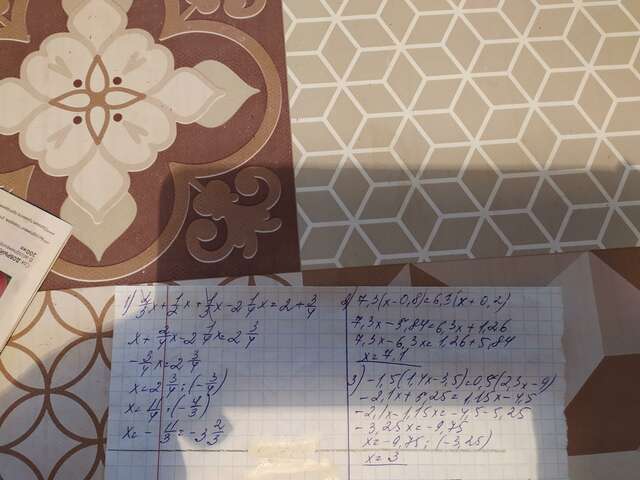 1) 2/3x+1/2x+1/3x-2 1/4x=2+3/4
x+2/4x-2 1/4x=2 3/4
-3/4x=2 3/4
x=2 3/4:(-3/4)
x=11/4·(-4/3)
x=-11/3=-3 2/3
2) 7,3(x-0,8)=6,3(x+0,2)
7,3x-5,84=6,3x+1,26
7,3x-6,3x=1,26+5,84
x=7,1
3) -1,5(1,4x-3,5)=0,5(2,3x-9)
-2,1x+5,25=1,15x-4,5
-2,1x-1,15x=-4,5-5,25
-3,25x=-9,75
x=-9,75:(-3,25)
x=3